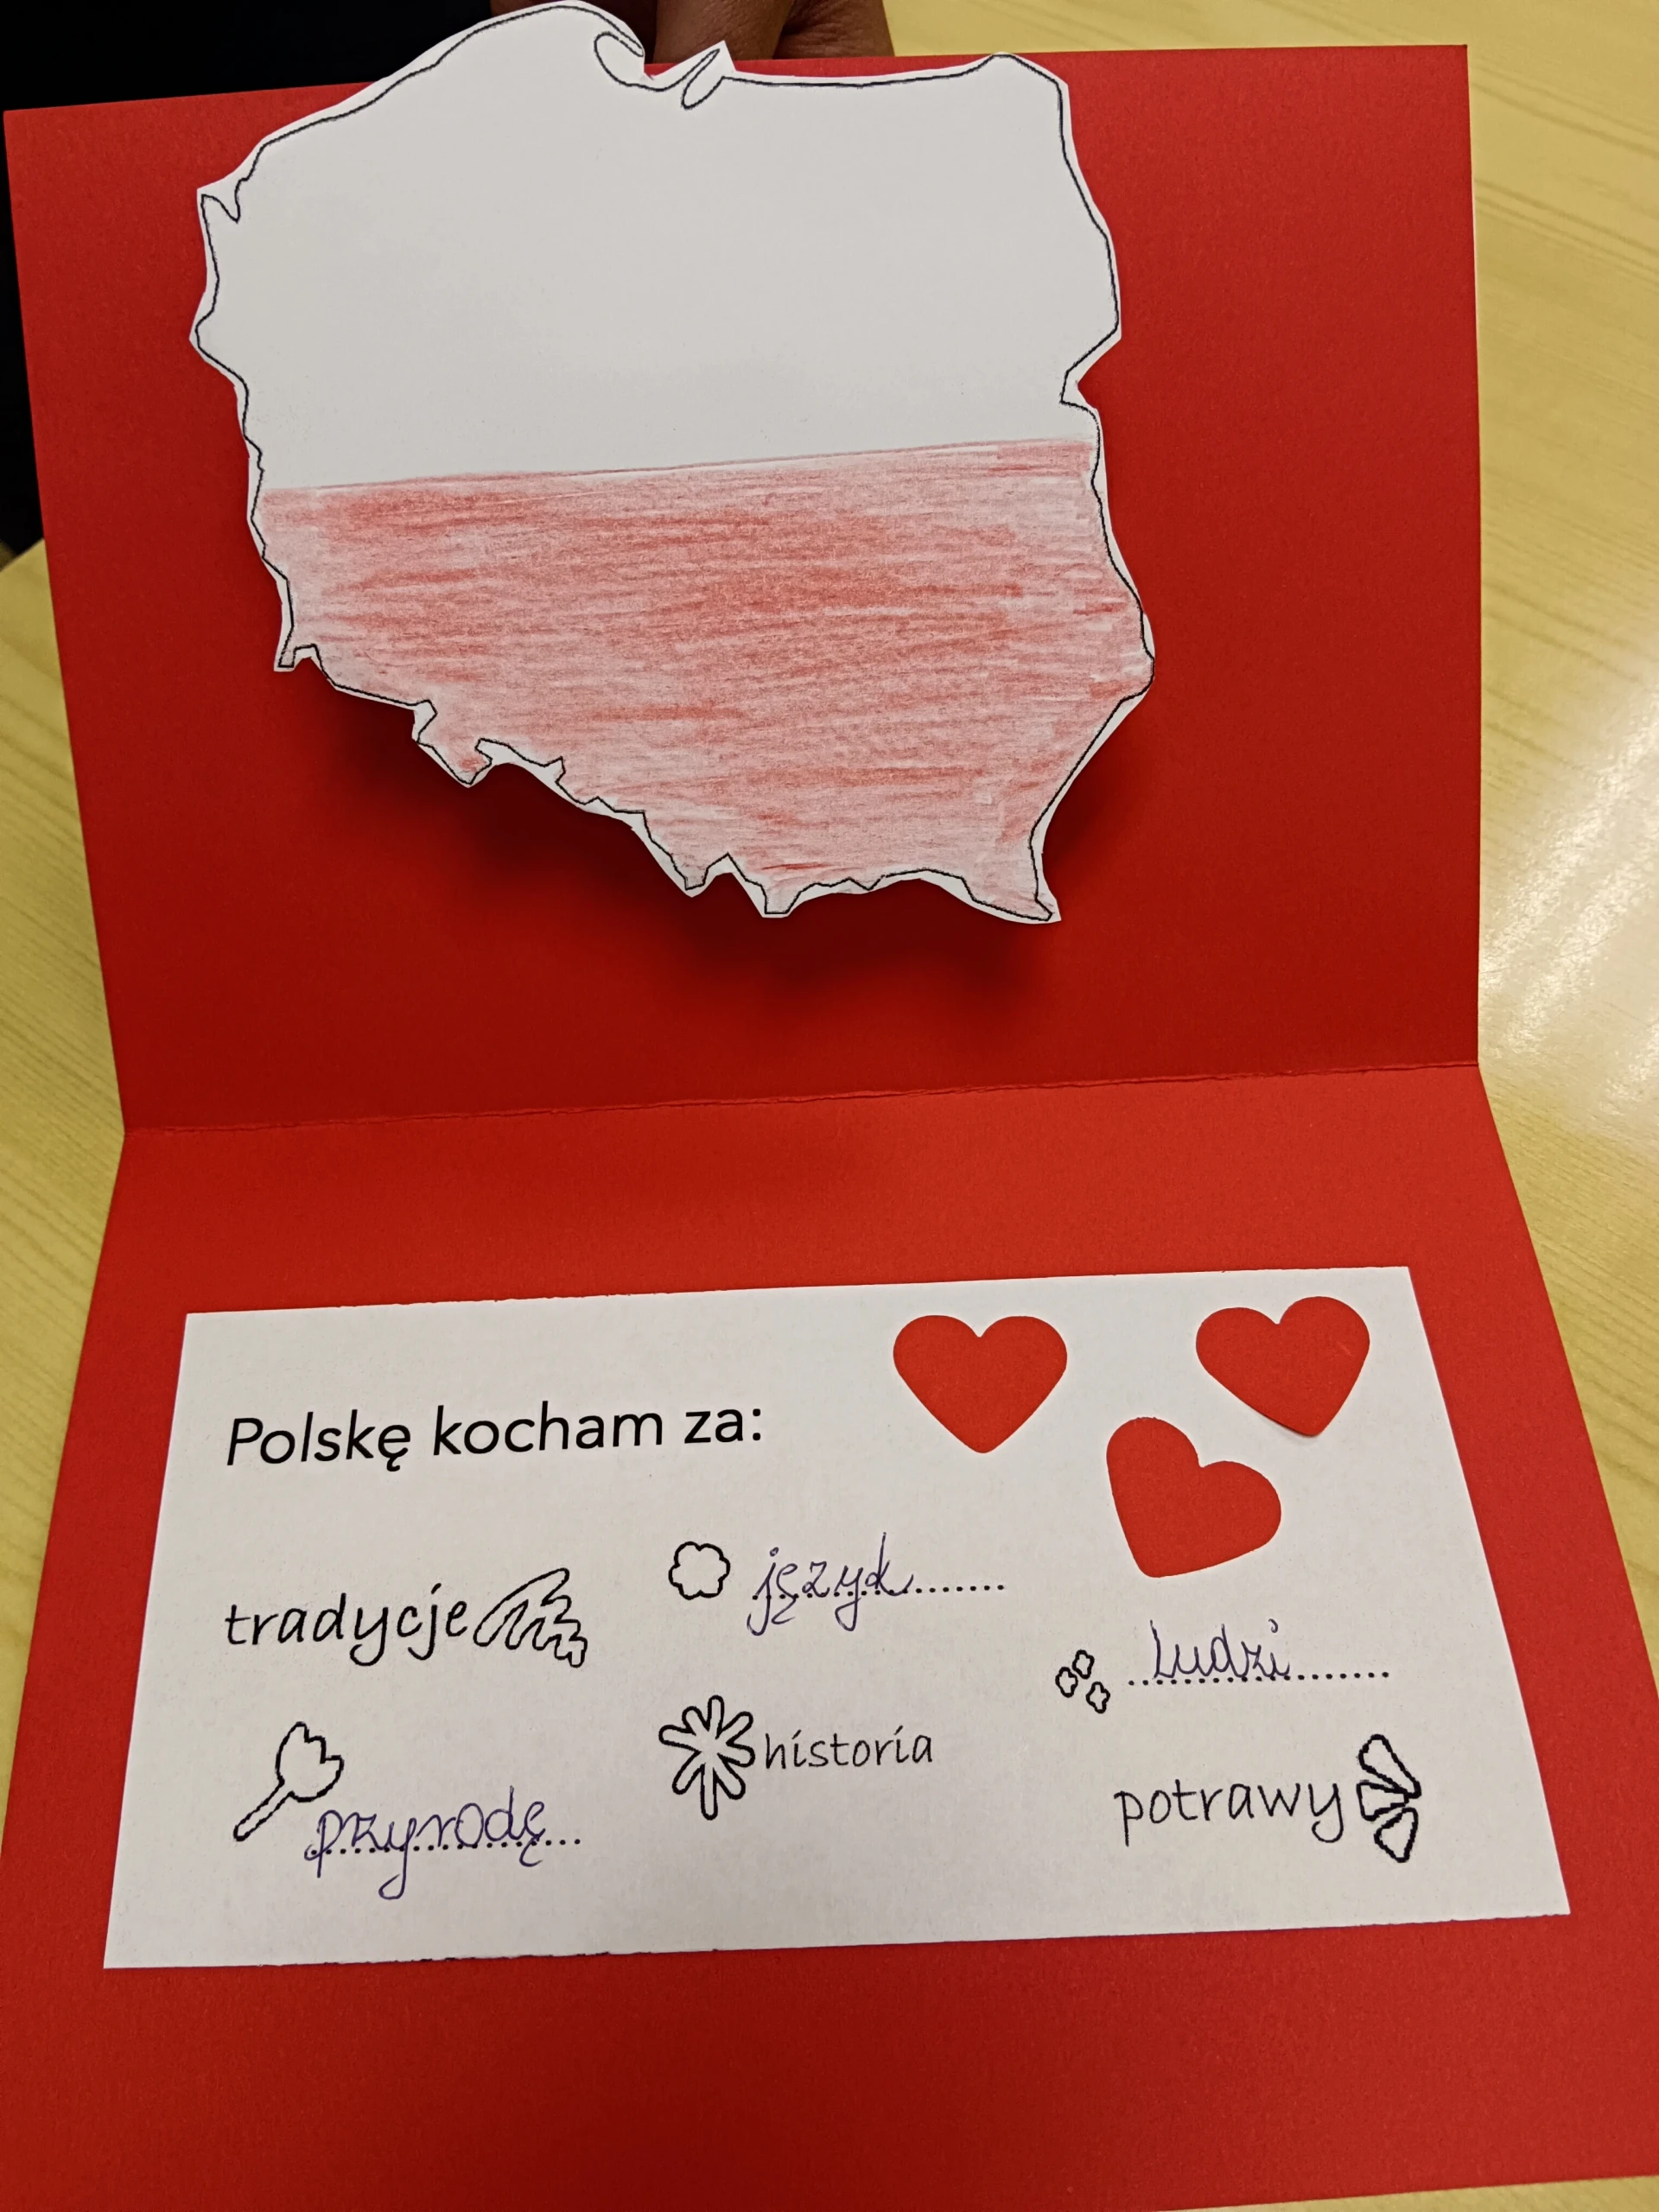 Polskę kocham za:
tradycje
język
ludzi
przyrodę
historia
potrawy